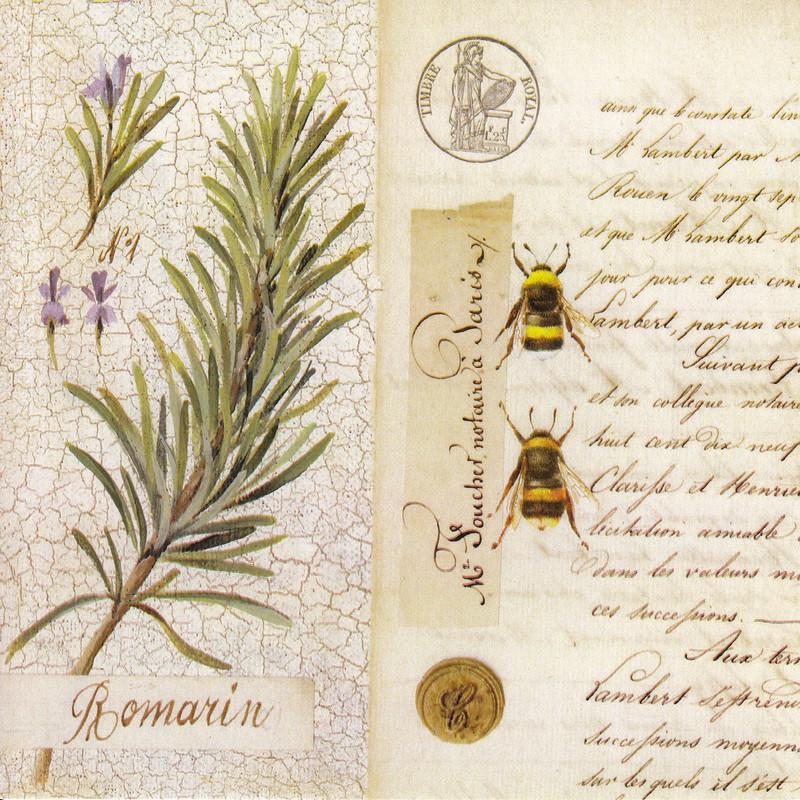 Nº 1
Romarin
TIMBRE ROYAL.
1.25
Mr Foucher notaire à Paris
ainsi que le constate l'in
Mr Lambert par
Rouen le vingt sep
et que Mr Lambert
jour pour ce qui con
Lambert, par un acte
Suivant p
et son collègue notaire
huit cent dix neuf
Clarisse et Henrie
licitation amiable
dans les valeurs m
ces successions.
Aux ter
Lambert
successions moyenn
sur lesquels il s'est